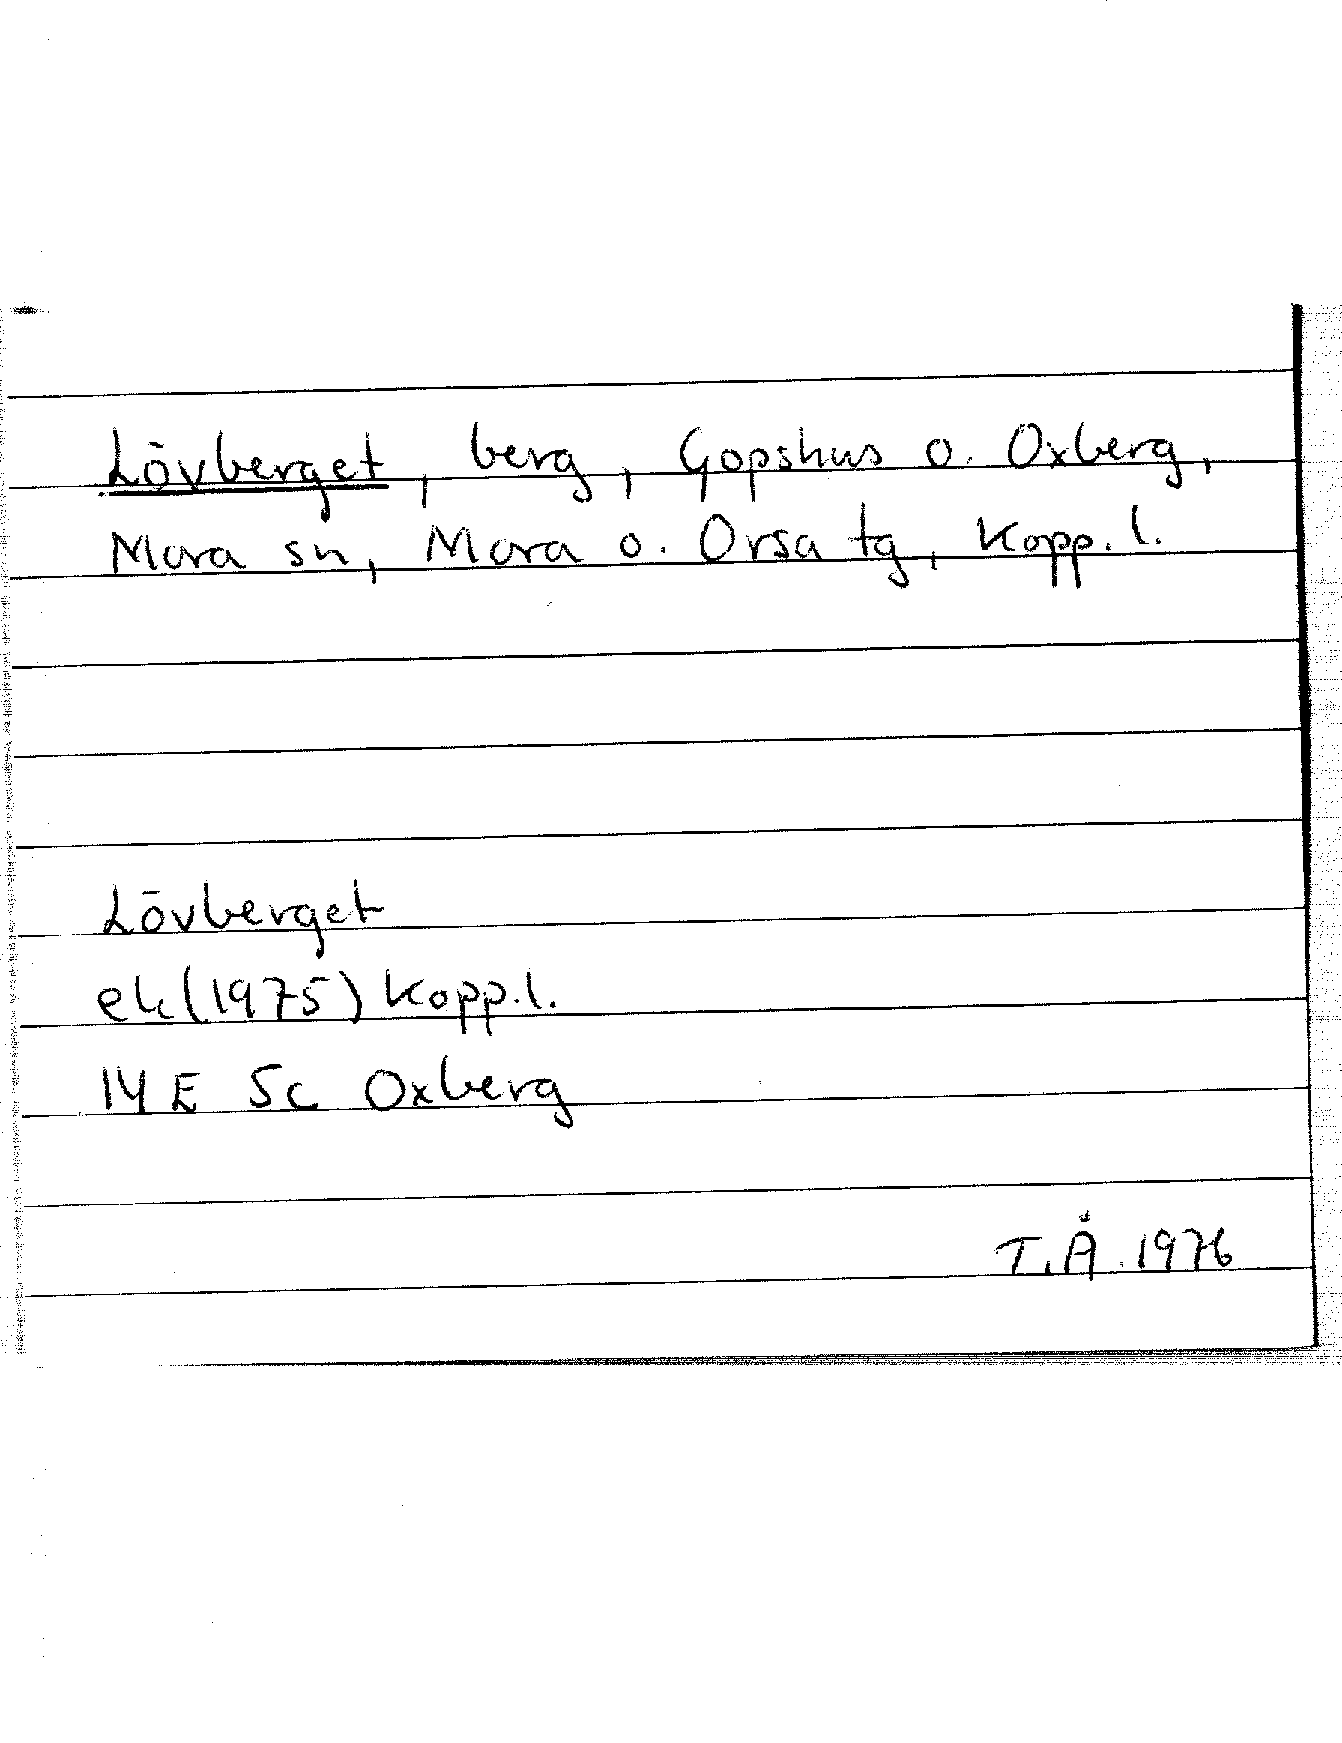 Lövberget, berg, Gopshus o. Oxberg,
Mora sn, Mora o. Orsa tg, Kopp. l.
Lövberget
ek (1975) Kopp. l.
14 E 5c Oxberg
T.Å. 1976